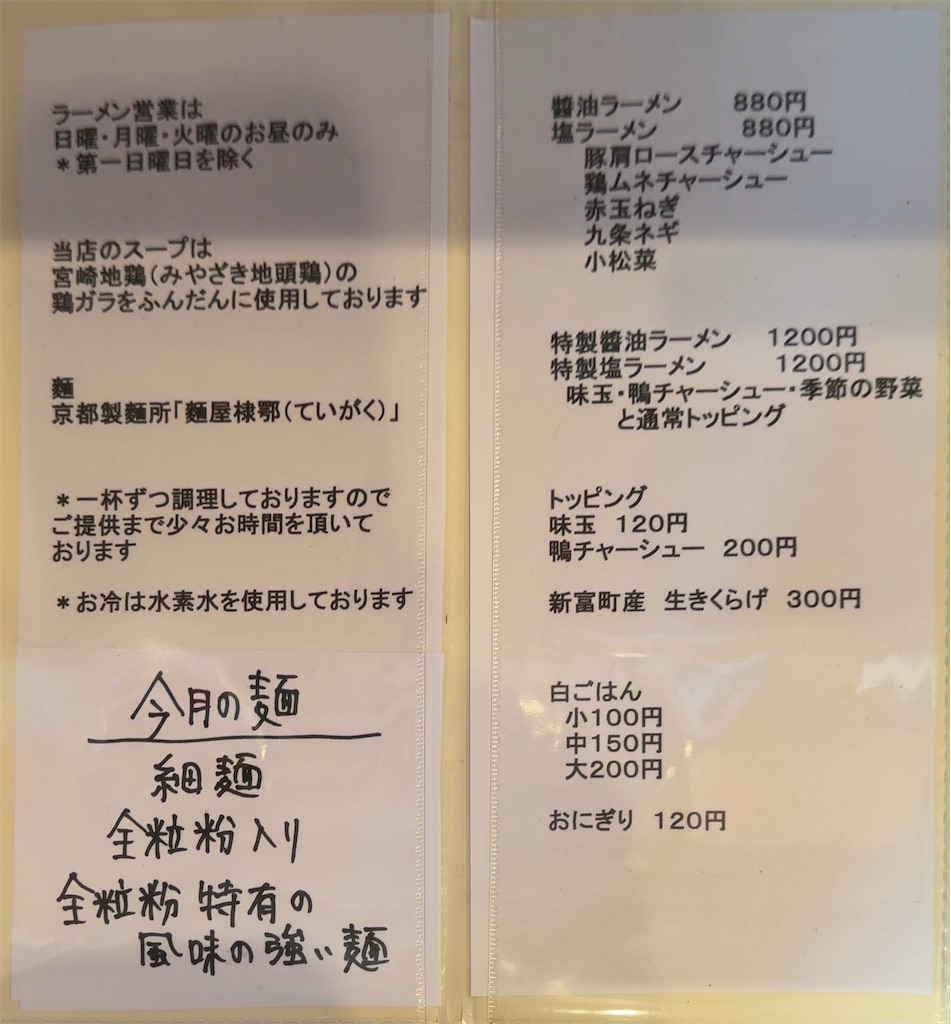 ラーメン営業は
日曜・月曜・火曜のお昼のみ
＊第一日曜日を除く
当店のスープは
宮崎地鶏(みやざき地頭鶏)の
鶏ガラをふんだんに使用しております
麺
京都製麺所「麺屋棣鄂(ていがく)」
＊一杯ずつ調理しておりますので
ご提供まで少々お時間を頂いて
おります
＊お冷は水素水を使用しております
今月の麺
細麺
全粒粉入り
全粒粉 特有の
風味の強い麺
醤油ラーメン 880円
塩ラーメン 880円
豚肩ロースチャーシュー
鶏ムネチャーシュー
赤玉ねぎ
九条ネギ
小松菜
特製醤油ラーメン 1200円
特製塩ラーメン 1200円
味玉・鴨チャーシュー・季節の野菜
と通常トッピング
トッピング
味玉 120円
鴨チャーシュー 200円
新富町産 生きくらげ 300円
白ごはん
小100円
中150円
大200円
おにぎり 120円